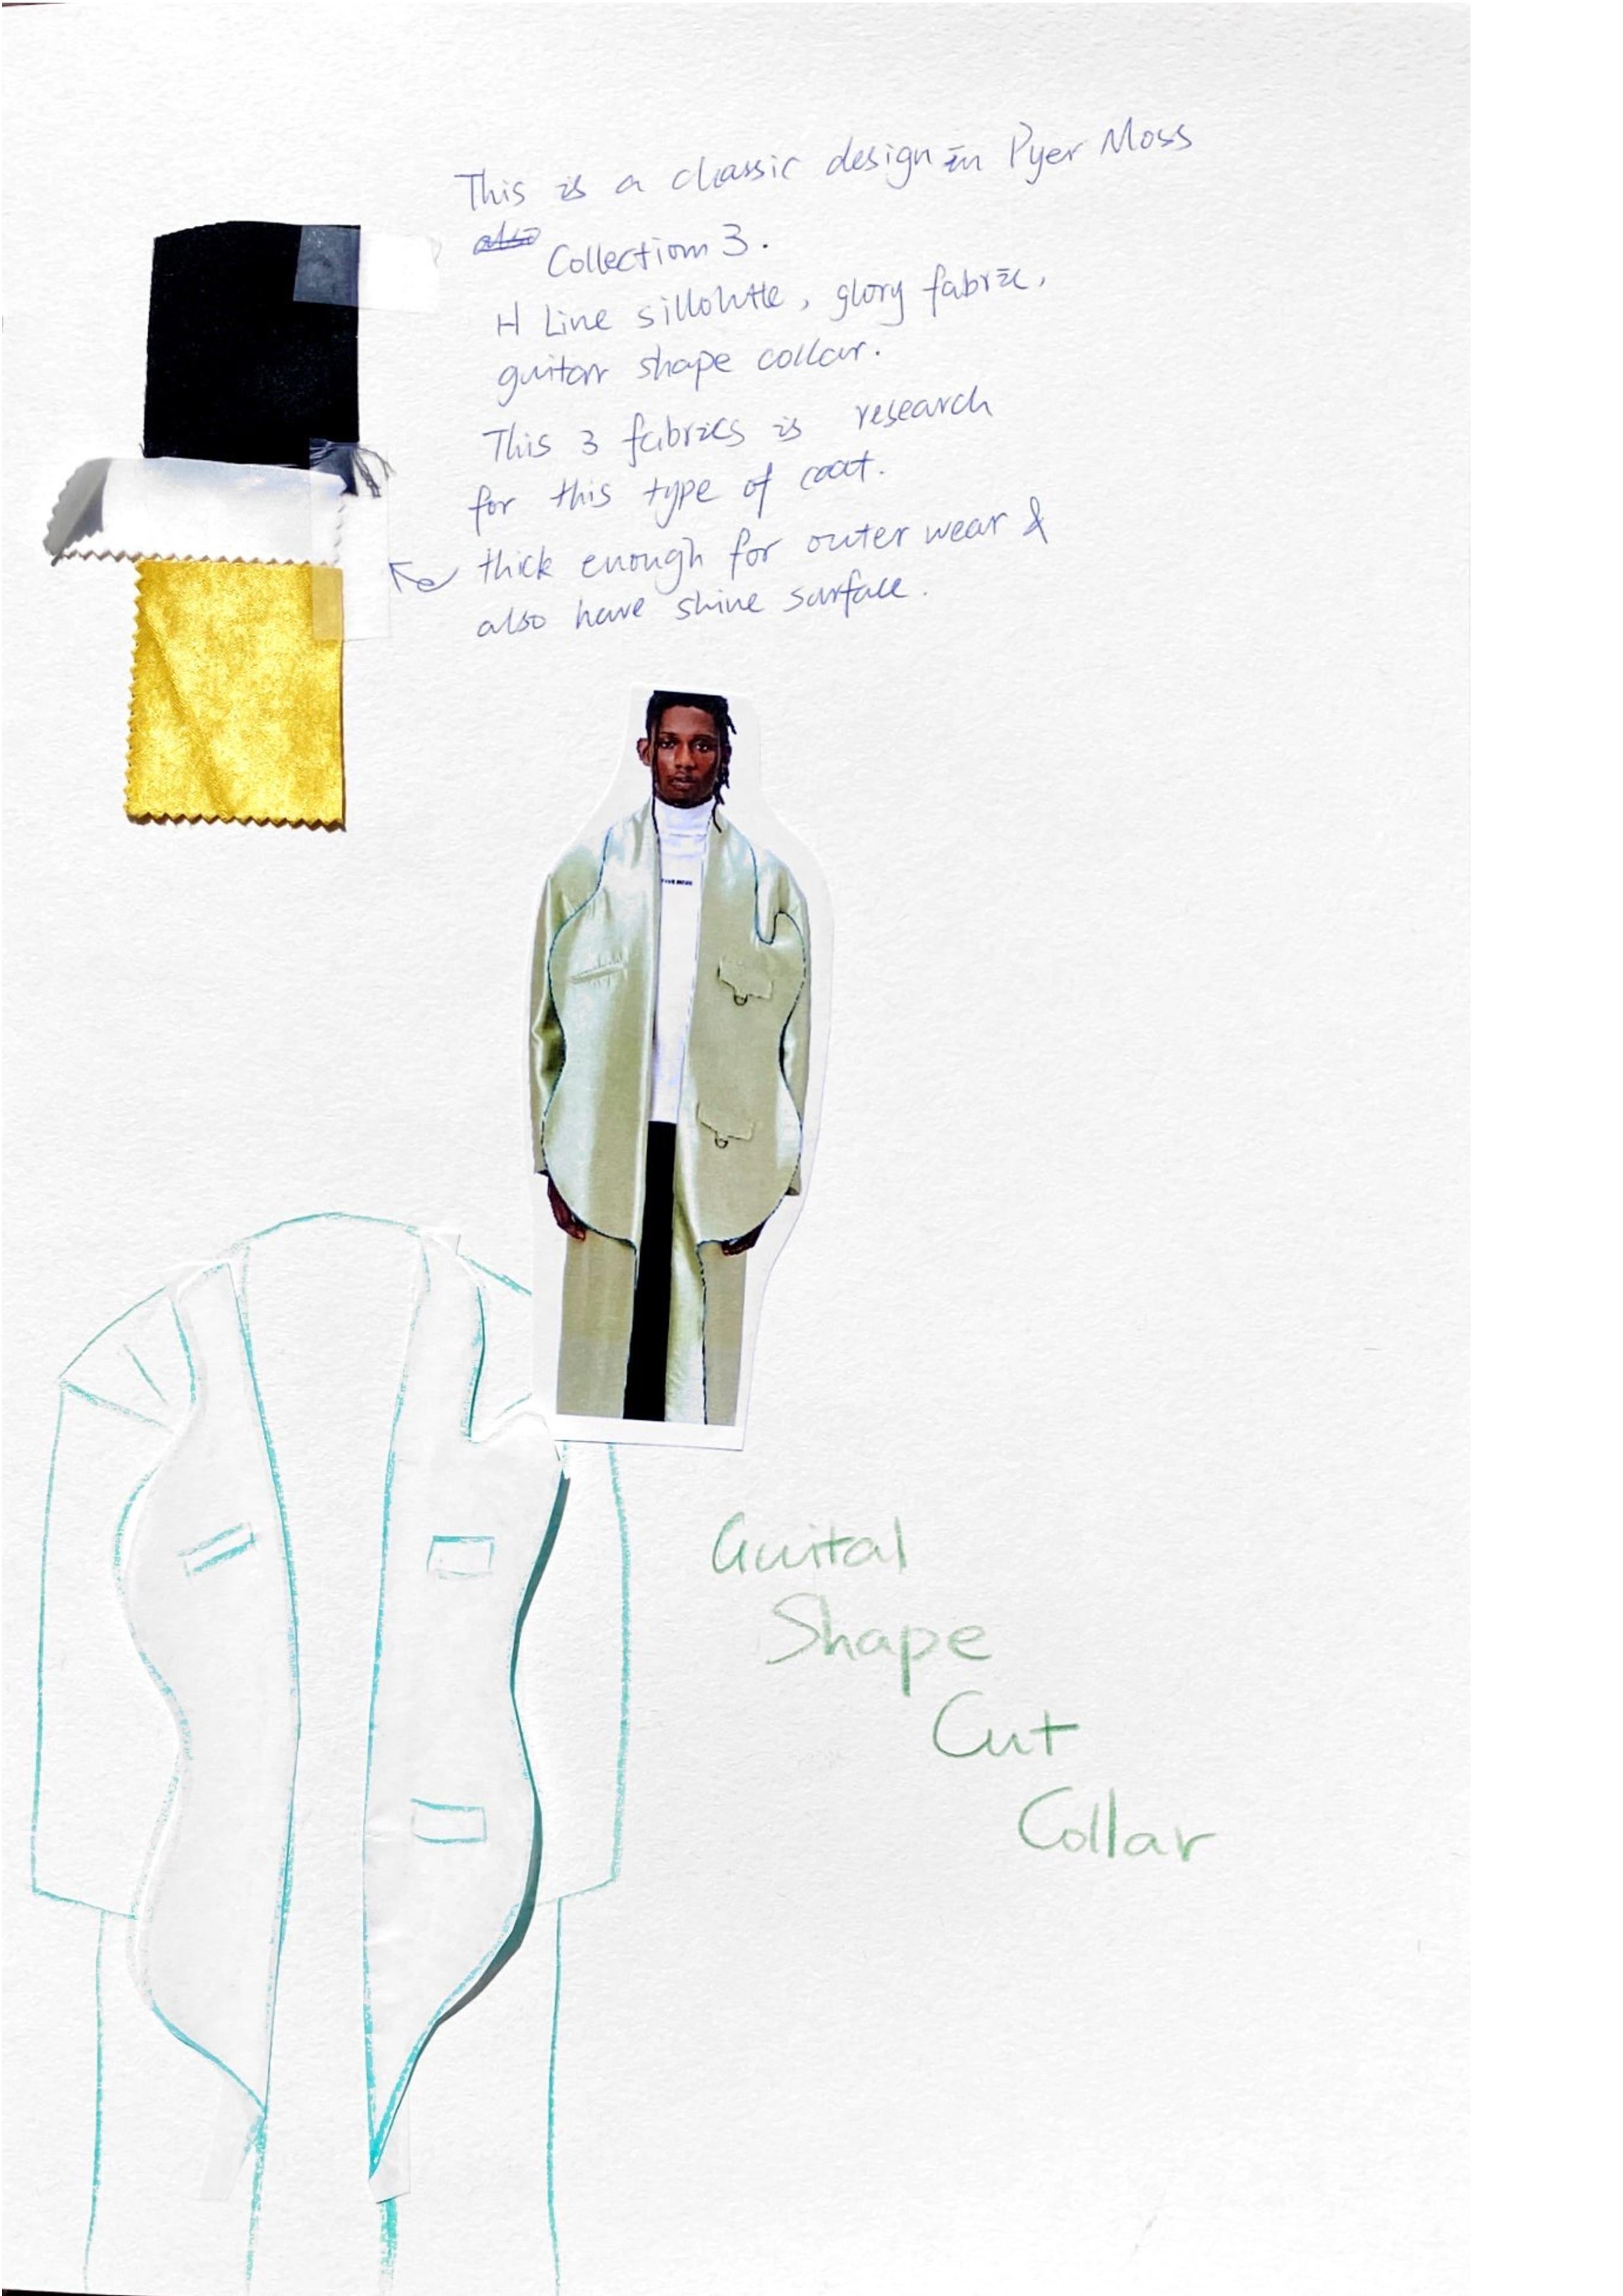 This is a classic design in Pyer Moss
also Collection 3.
H Line sillohtte, glory fabric,
guitar shape collar.
This 3 fabrics is research
for this type of coat.
thick enough for outer wear &
also have shine surface.
Guital
Shape
Cut
Collar